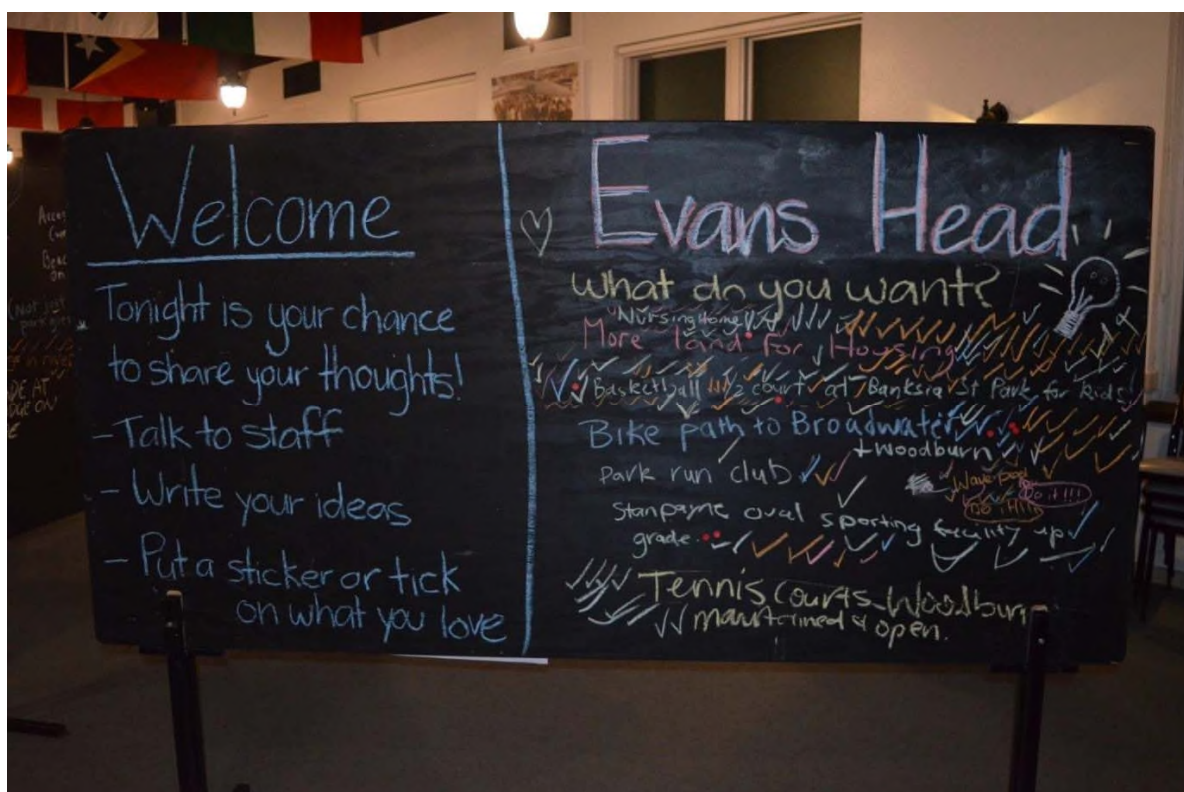 Welcome
Tonight is your chance
to share your thoughts!
- Talk to staff
- Write your ideas
- Put a sticker or tick
on what you love
Evans Head
What do you want?
Nursing Home
More land for Housing
Basketball 1/2 court at Banksia St Park for kids!
Bike path to Broadwater
+ Woodburn
Park run club
Wave pool
Do it!!!
Do it!!!!
Stan payne oval sporting facility up
grade
Tennis courts Woodburn
maintained & open.
(Not just